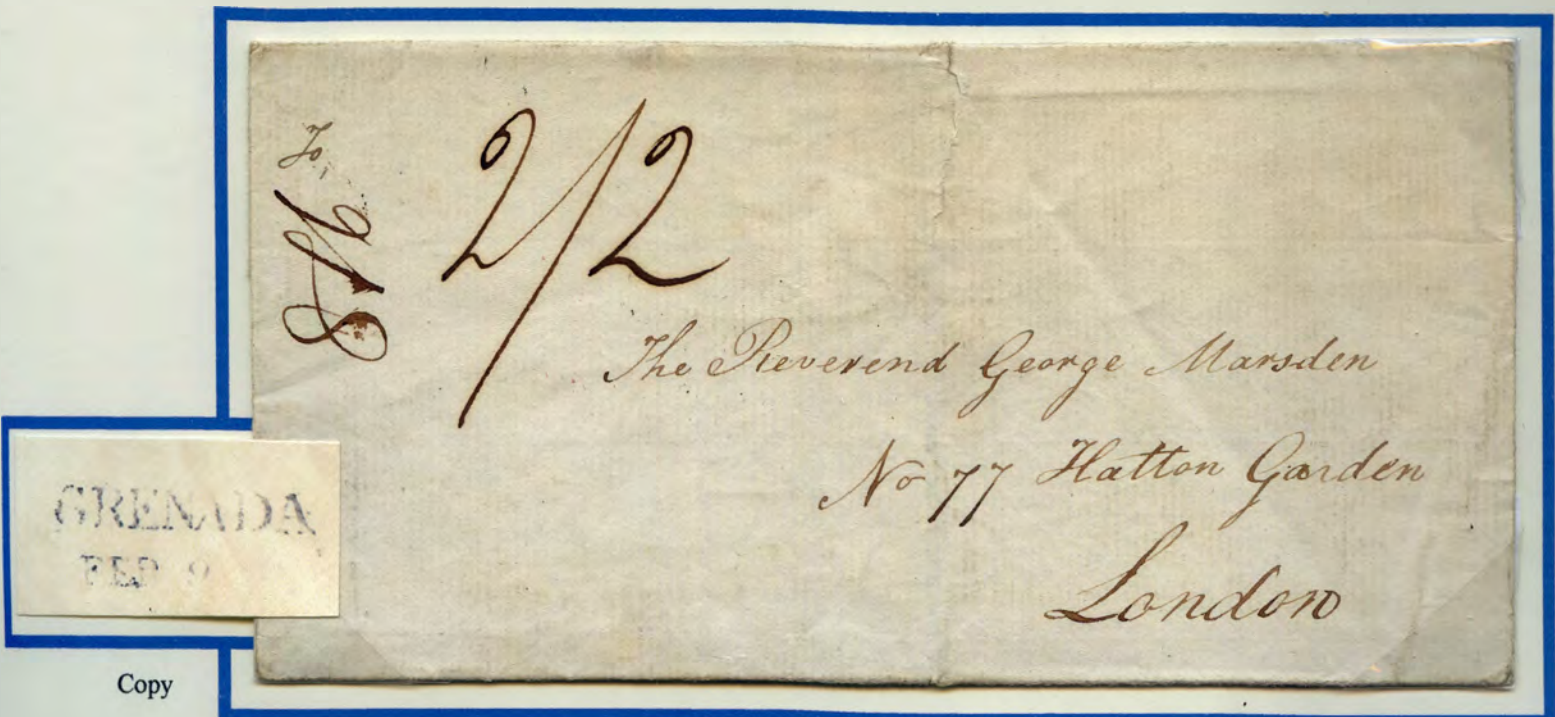 To
2/2
The Reverend George Marsden
No 77 Hatton Garden
London
GRENADA
FEB 9
Copy